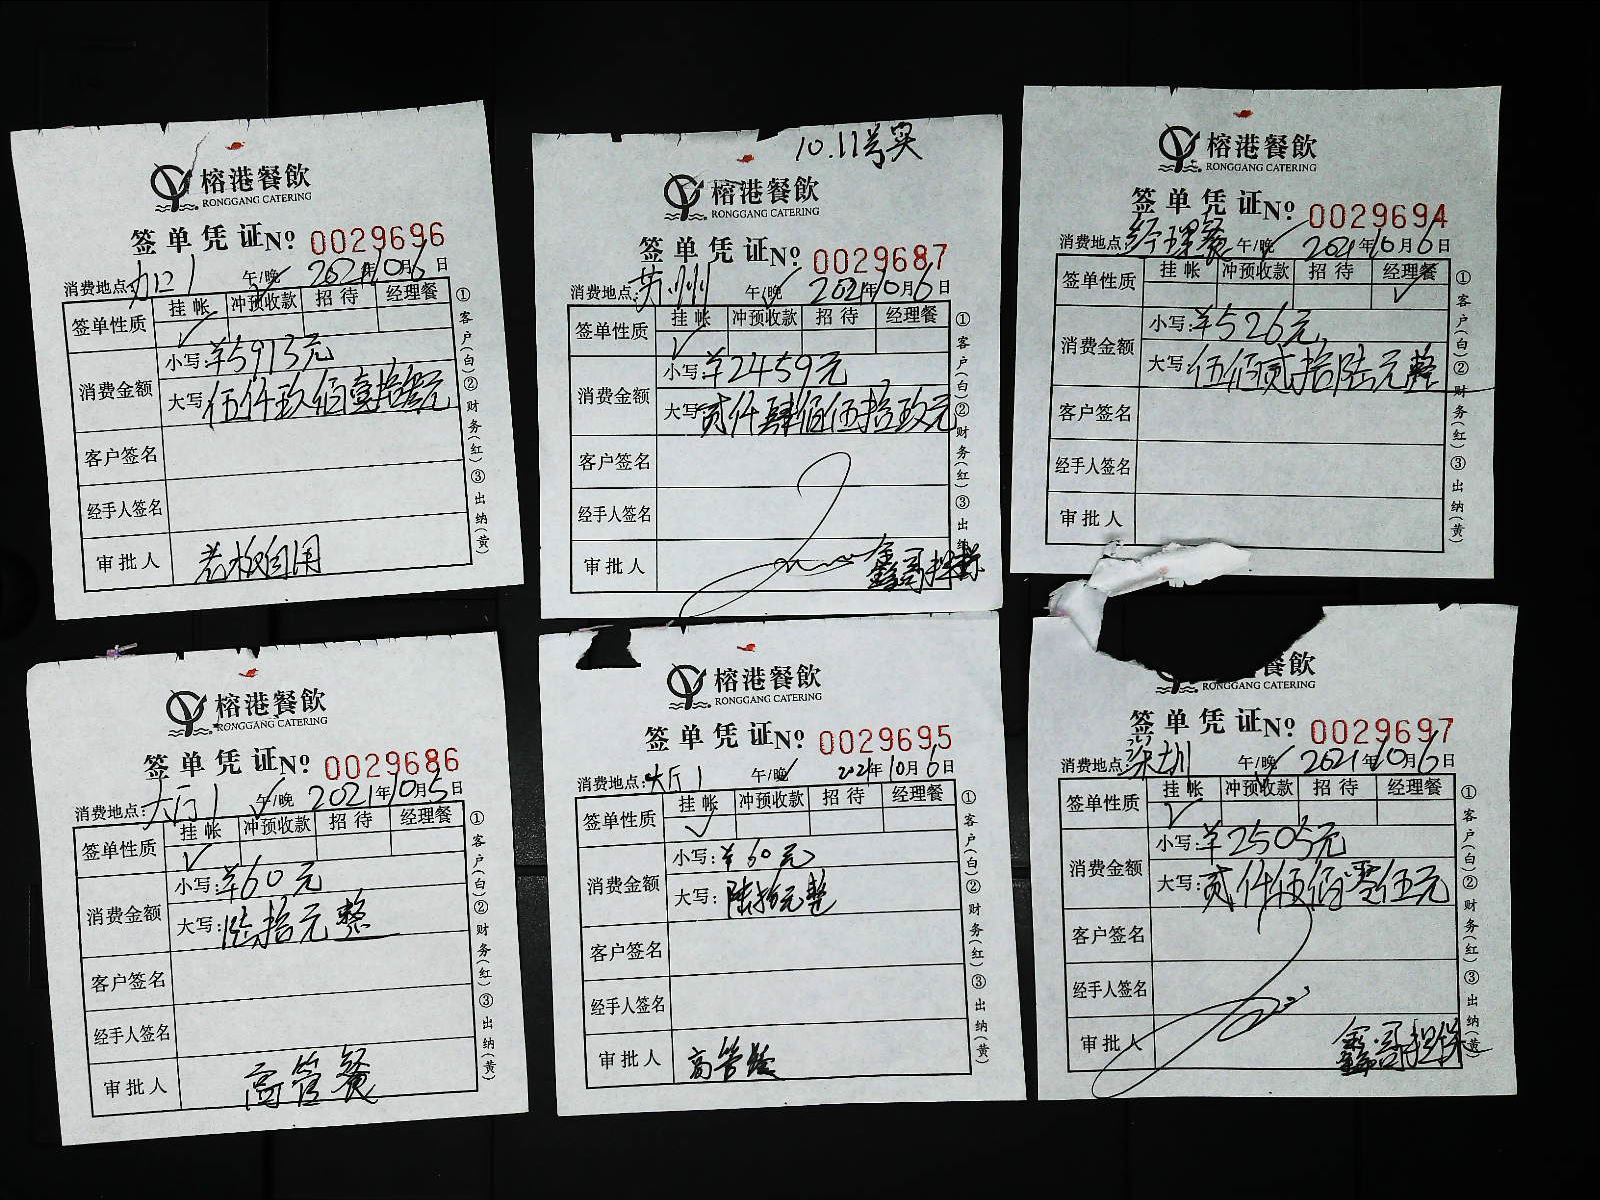 榕港餐飲
RONGGANG CATERING
签单凭证 No 0029696
消费地点: 午/晚 2021年10月6日
签单性质 挂帐 冲预收款 招待 经理餐
小写:¥5913元
消费金额
大写:伍仟玖佰壹拾叁元
客户签名
经手人签名
审批人
①客户(白)②财务(红)③出纳(黄)
10.11号实
榕港餐飲
RONGGANG CATERING
签单凭证 No 0029687
消费地点: 午/晚 2021年10月6日
签单性质 挂帐 冲预收款 招待 经理餐
小写:¥2459元
消费金额
大写:贰仟肆佰伍拾玖元
客户签名
经手人签名
审批人 鑫哥担保
①客户(白)②财务(红)③出纳
榕港餐飲
RONGGANG CATERING
签单凭证 No 0029694
消费地点:经理餐 午/晚 2021年10月6日
签单性质 挂帐 冲预收款 招待 经理餐
小写:¥526元
消费金额
大写:伍佰贰拾陆元整
客户签名
经手人签名
审批人
①客户(白)②财务(红)③出纳(黄)
榕港餐飲
RONGGANG CATERING
签单凭证 No 0029686
消费地点:大厅1 午/晚 2021年10月5日
签单性质 挂帐 冲预收款 招待 经理餐
小写:¥60元
消费金额
大写:陆拾元整
客户签名
经手人签名
审批人 高管餐
①客户(白)②财务(红)③出纳(黄)
榕港餐飲
RONGGANG CATERING
签单凭证 No 0029695
消费地点:大厅1 午/晚 2021年10月6日
签单性质 挂帐 冲预收款 招待 经理餐
小写:¥60元
消费金额
大写:陆拾元整
客户签名
经手人签名
审批人 高管餐
①客户(白)②财务(红)③出纳(黄)
餐飲
RONGGANG CATERING
签单凭证 No 0029697
消费地点:深圳 午/晚 2021年10月6日
签单性质 挂帐 冲预收款 招待 经理餐
小写:¥2505元
消费金额
大写:贰仟伍佰零伍元
客户签名
经手人签名
审批人 鑫哥担保
①客户(白)②财务(红)③出纳(黄)